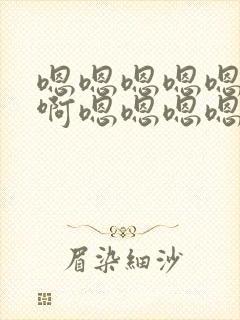 嗯嗯嗯嗯嗯
啊嗯嗯嗯嗯
眉染细沙